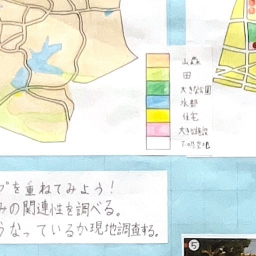 山森
田
大きな公園
水部
住宅
大きな施設
グを重ねてみよう!
みの関連性を調べる。
うなっているか現地調査する。
5